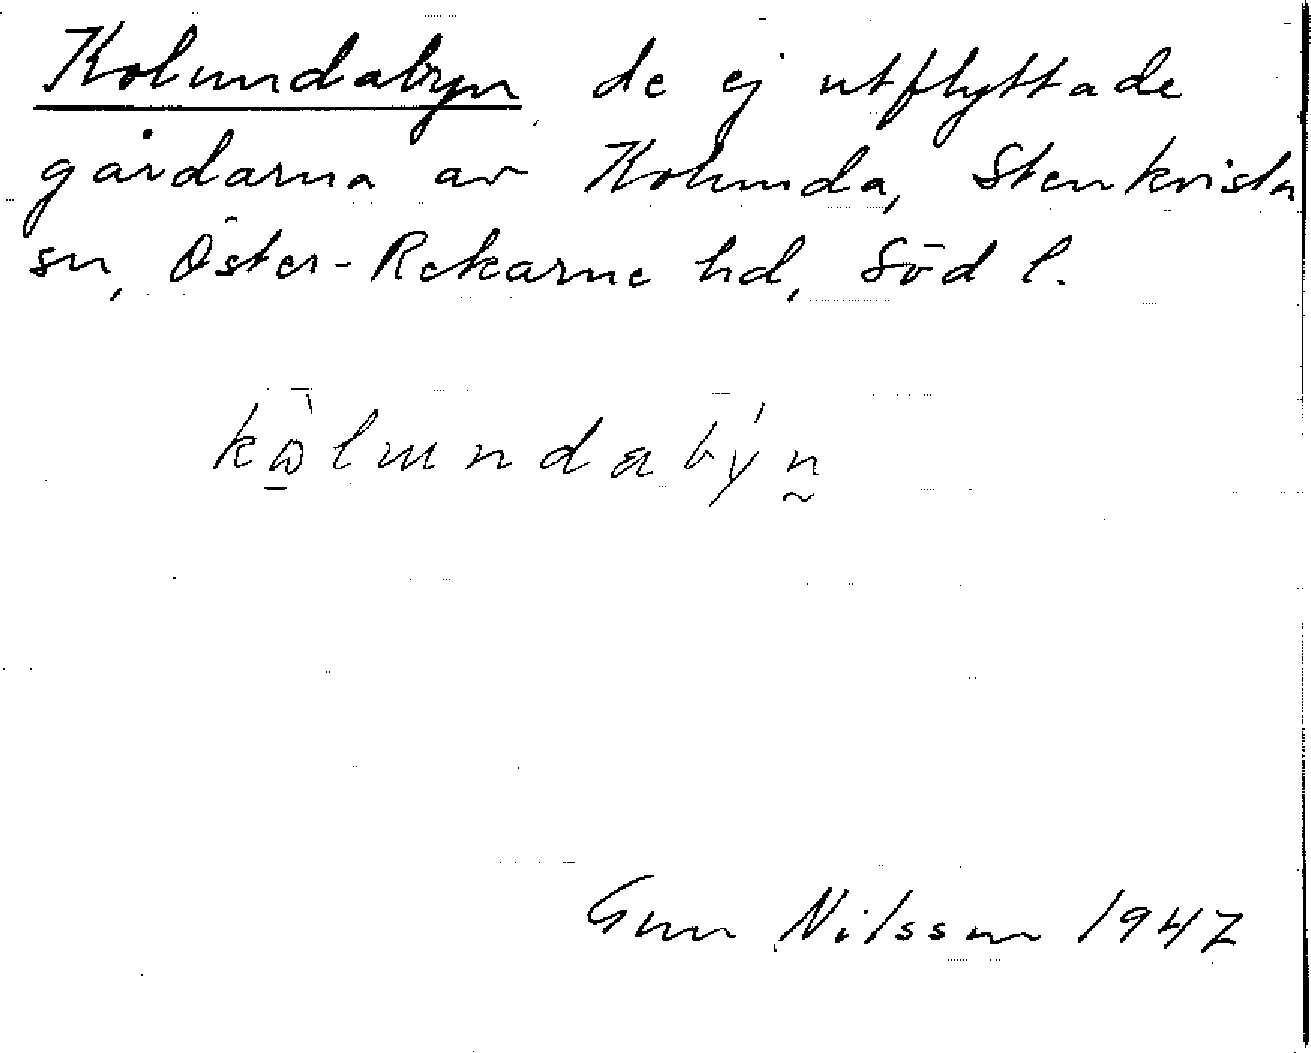 Kolundabyn de ej utflyttade
gårdarna av Kolunda, Stenkvista
sn, Öster-Rekarne hd, Söd l.
kòlundabýn
Gun Nilsson 1947